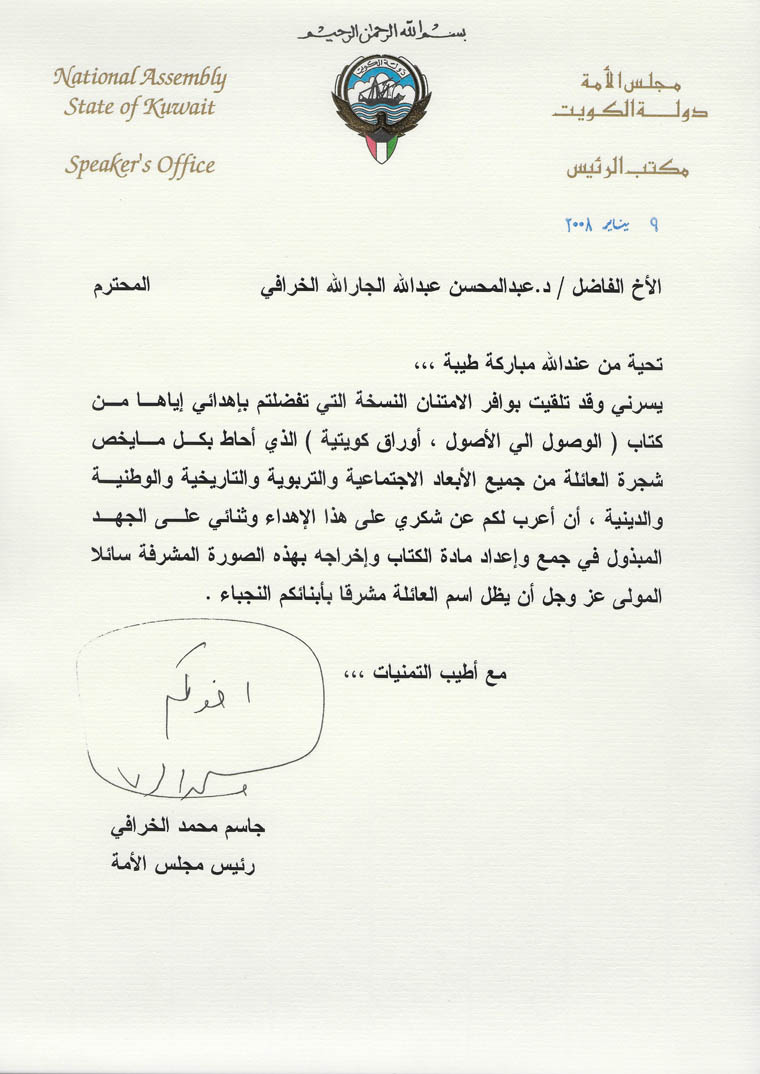 بسم الله الرحمن الرحيم
دولة الكويت
National Assembly
State of Kuwait
Speaker's Office
مجلس الأمة
دولة الكويت
مكتب الرئيس
٩ يناير ٢٠٠٨
الأخ الفاضل / د.عبدالمحسن عبدالله الجارالله الخرافي المحترم
تحية من عندالله مباركة طيبة ،،،
يسرني وقد تلقيت بوافر الامتنان النسخة التي تفضلتم بإهدائي إياها من
كتاب ( الوصول الي الأصول ، أوراق كويتية ) الذي أحاط بكل مايخص
شجرة العائلة من جميع الأبعاد الاجتماعية والتربوية والتاريخية والوطنية
والدينية ، أن أعرب لكم عن شكري على هذا الإهداء وثنائي على الجهد
المبذول في جمع وإعداد مادة الكتاب وإخراجه بهذه الصورة المشرفة سائلا
المولى عز وجل أن يظل اسم العائلة مشرقا بأبنائكم النجباء .
مع أطيب التمنيات ،،،
اخوكم
جاسم محمد الخرافي
رئيس مجلس الأمة